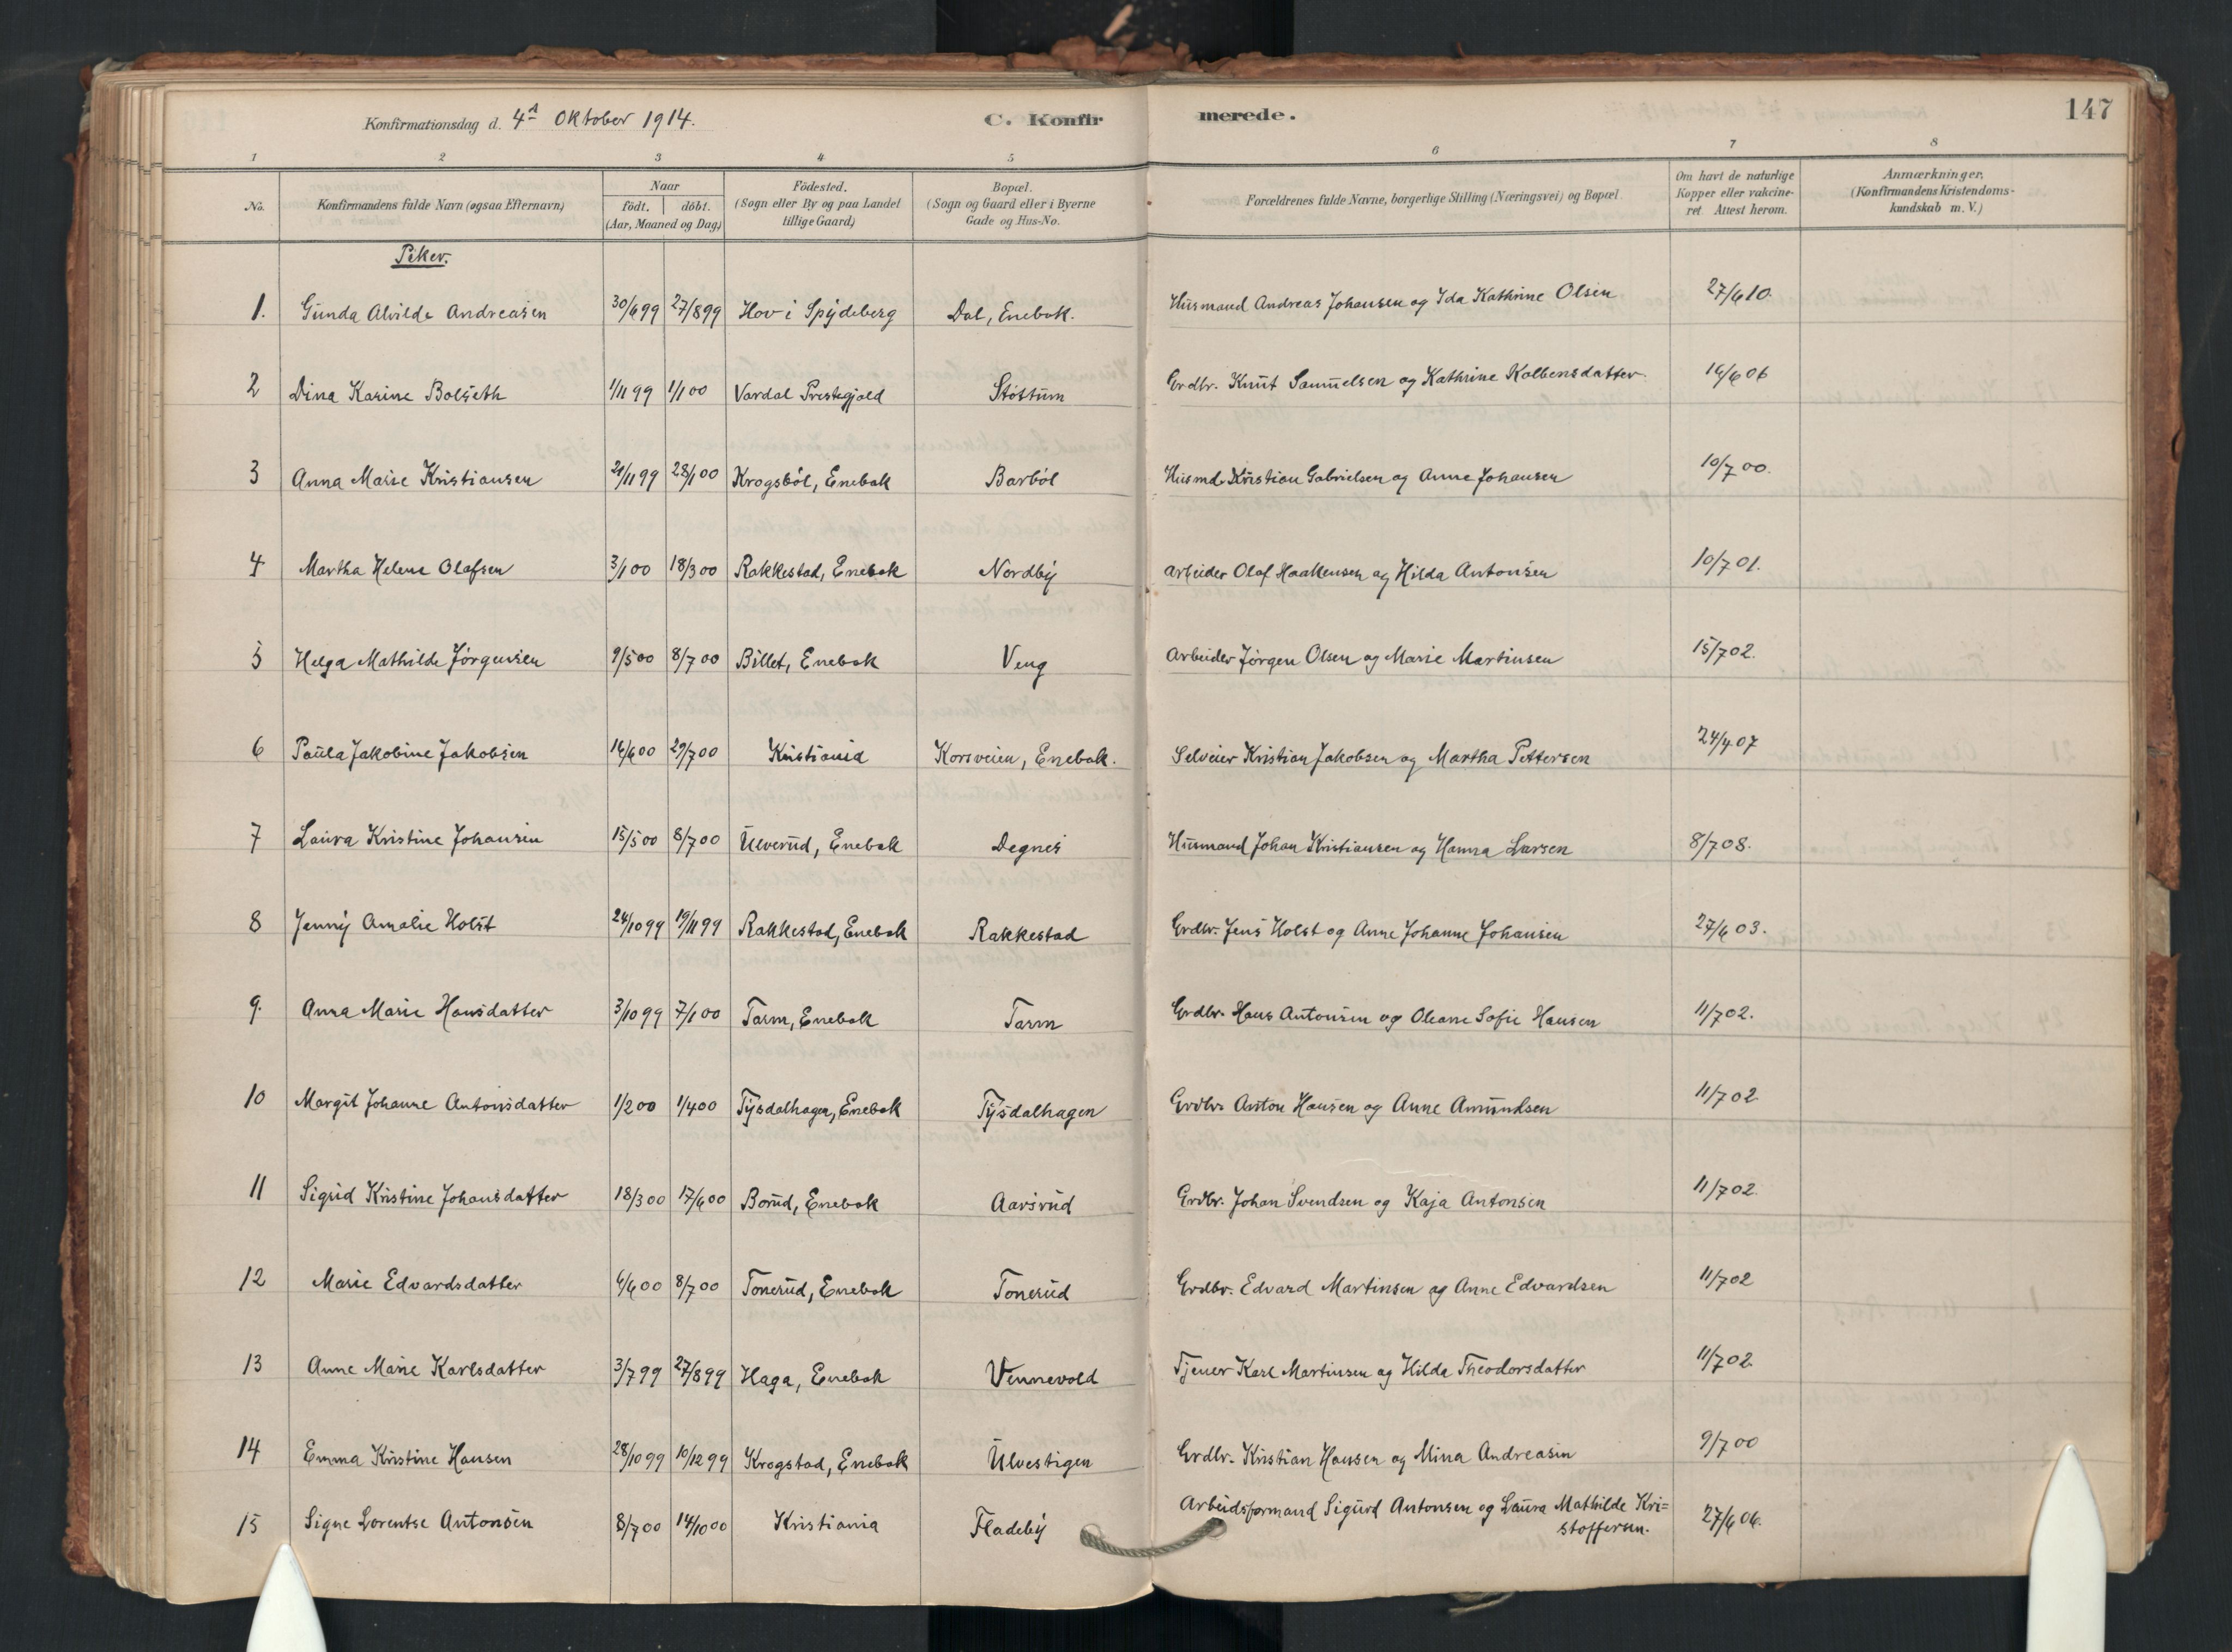 Konfirmationsdag d. 4de Oktober 1914.
C. Konfirmerede.
147
1 2 3 4 5 6 7 8
No.
Konfirmandens fulde Navn (ogsaa Efternavn)
Naar
födt. döbt.
(Aar, Maaned og Dag)
Födested.
(Sogn eller By og paa Landet
tillige Gaard)
Bopæl.
(Sogn og Gaard eller i Byerne
Gade og Hus-No.
Forældrenes fulde Navne, borgerlige Stilling (Næringsvei) og Bopæl
Om havt de naturlige
Kopper eller vakcine-
ret Attest herom.
Anmærkninger.
(Konfirmandens Kristendoms-
kundskab m. V.)
Piker.
1. Gunda Alvilde Andreasen 30/6 99 27/8 99 Hov i Spydeberg Dal, Enebak. Husmand Andreas Johansen og Ida Kathrine Olsen 27/6 10.
2 Dina Karine Bolseth 1/11 99 1/1 00 Vardal Prestegjeld Støttum Grdbr. Knut Samuelsen og Kathrine Kolbensdatter 14/6 06
3 Anna Marie Kristiansen 21/11 99 28/1 00 Krogsböl, Enebak Barböl Husmd. Kristian Gabrielsen og Anne Johansen 10/7 00.
4 Martha Helene Olafsen 3/1 00 18/3 00 Rakkestad, Enebak Nordby Arbeider Olaf Haakensen og Hilda Antonsen 10/7 01.
5 Helga Mathilde Jörgensen 9/5 00 8/7 00 Billet, Enebak Veng Arbeider Jörgen Olsen og Marie Martinsen 15/7 02.
6 Paula Jakobine Jakobsen 14/6 00 29/7 00 Kristiania Korsveien, Enebak. Selveier Kristian Jakobsen og Martha Pettersen 24/4 07
7 Laura Kristine Johansen 15/5 00 8/7 00 Ulverud, Enebak Degnes Husmand Johan Kristiansen og Hanna Larsen 8/7 08.
8 Jenny Amalie Holst 24/10 99 19/11 99 Rakkestad, Enebak Rakkestad Grdbr. Jens Holst og Anne Johanne Johansen 27/6 03.
9. Anna Marie Hansdatter 3/10 99 7/1 00 Tarm, Enebak Tarm Grdbr. Hans Antonsen og Oleane Sofie Hansen 11/7 02.
10 Margit Johanne Antonsdatter 1/2 00 1/4 00 Tysdalhagen, Enebak Tysdalhagen Grdbr. Anton Hansen og Anne Amundsen 11/7 02
11 Sigrid Kristine Johansdatter 18/3 00 17/6 00 Borud, Enebak Aarsrud Grdbr. Johan Svendsen og Kaja Antonsen 11/7 02.
12 Marie Edvardsdatter 4/6 00 8/7 00 Tonerud, Enebak Tonerud Grdbr. Edvard Martinsen og Anne Edvardsen 11/7 02
13 Anne Marie Karlsdatter 3/7 99 27/8 99 Haga, Enebak Vennevold Tjener Karl Martinsen og Hilda Theodorsdatter 11/7 02.
14 Emma Kristine Hansen 28/10 99 10/12 99 Krogstad, Enebak Ulvestigen Grdbr. Kristian Hansen og Mina Andreasen 9/7 00
15 Signe Lorentse Antonsen 8/7 00 14/10 00 Kristiania Fladeby Arbeidsformand Sigurd Antonsen og Laura Mathilde Kri=
stoffersen. 27/6 06.